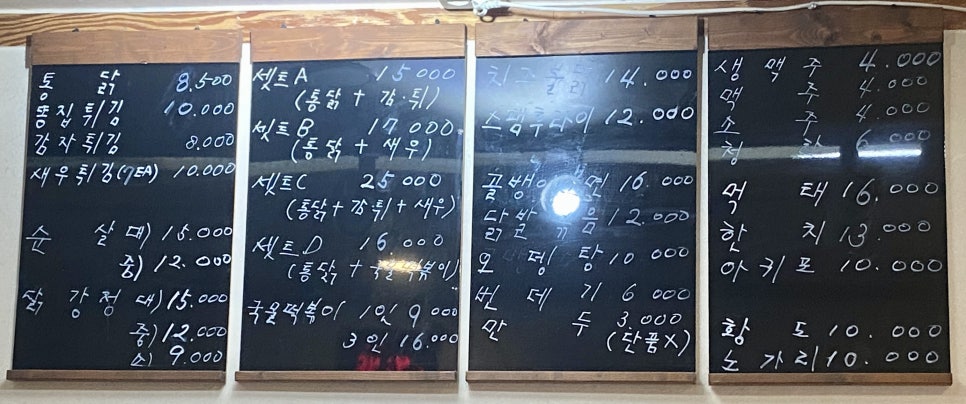 통 닭 8,500
똥집튀김 10.000
감자튀김 8.000
새우튀김(7EA) 10.000
순 살 대) 15.000
중) 12.000
닭 강정 대) 15.000
중) 12.000
소) 9.000
셋트A 15000
(통닭 + 감·튀)
셋트B 17000.
(통닭 + 새우)
셋트C 25000
(통닭 + 감·튀 + 새우)
셋트D 16.000
(통닭 + 국물떡볶이)
국물떡볶이 1인 9000
3인 16.000
치즈 14.000
12.000
골뱅이 16.000
닭발 12.000
오뎅탕 10.000
번데기 6000
만 두 3.000
(단품X)
생맥주 4.000
맥 주 4.000
소 주 4.000
청 하 6.000
먹 태 16.000
한 치 13.000
아귀포 10.000
황 도 10.000
노가리 10.000